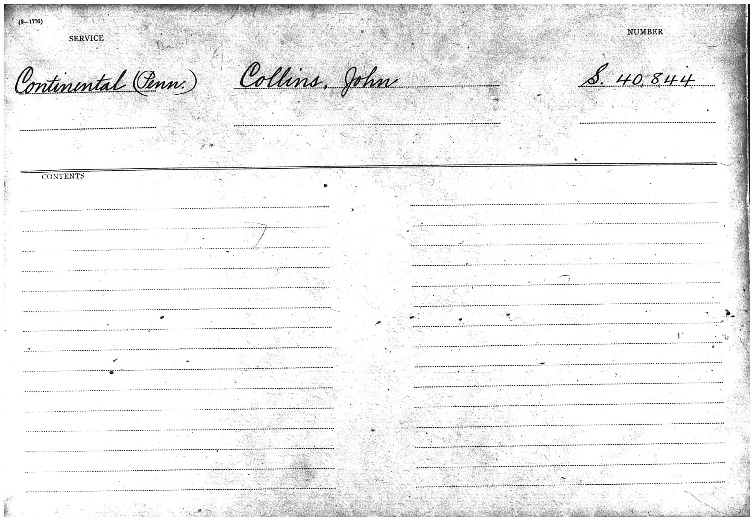 (8—1776)
SERVICE
NUMBER
Continental (Penn.) Collins, John S. 40,844
CONTENTS